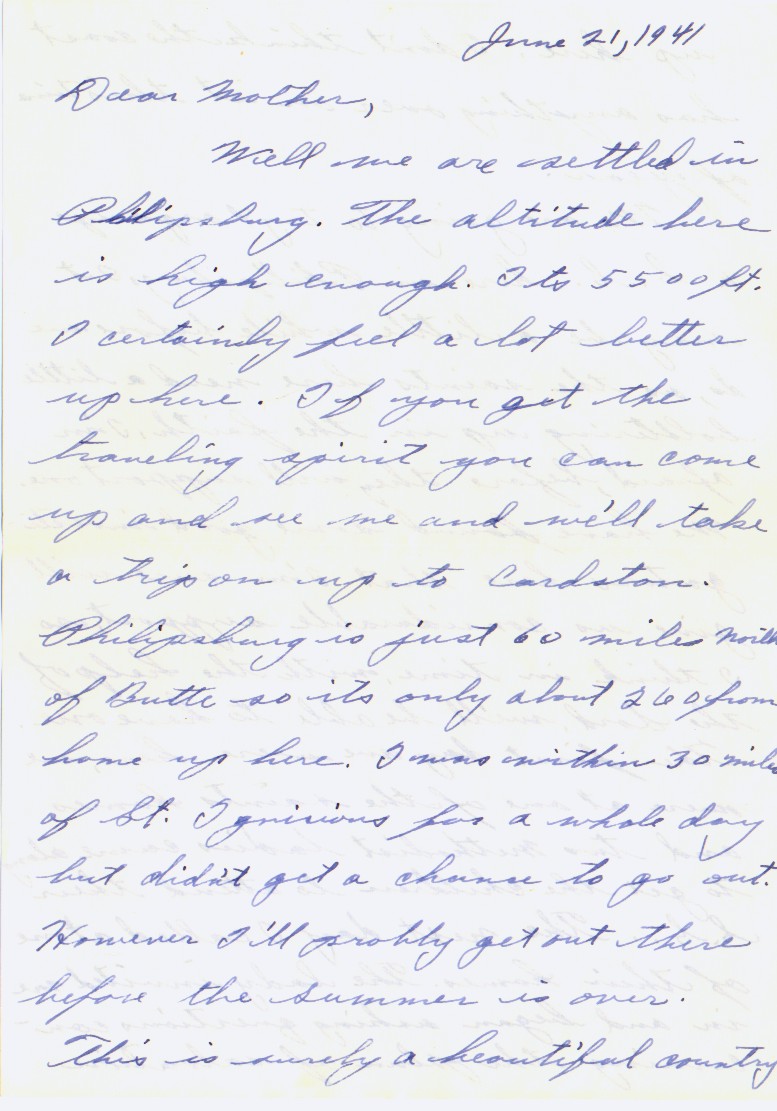 June 21, 1941
Dear Mother,
Well we are settled in
Philipsburg. The altitude here
is high enough. Its 5500 ft.
I certainly feel a lot better
up here. If you get the
traveling spirit you can come
up and see me and we'll take
a trip on up to Cardston.
Philipsburg is just 60 miles north
of Butte so its only about 260 from
home up here. I was within 30 miles
of St. Ignicious for a whole day
but didn't get a chance to go out.
However I'll probly get out there
before the summer is over.
This is surely a beautiful country